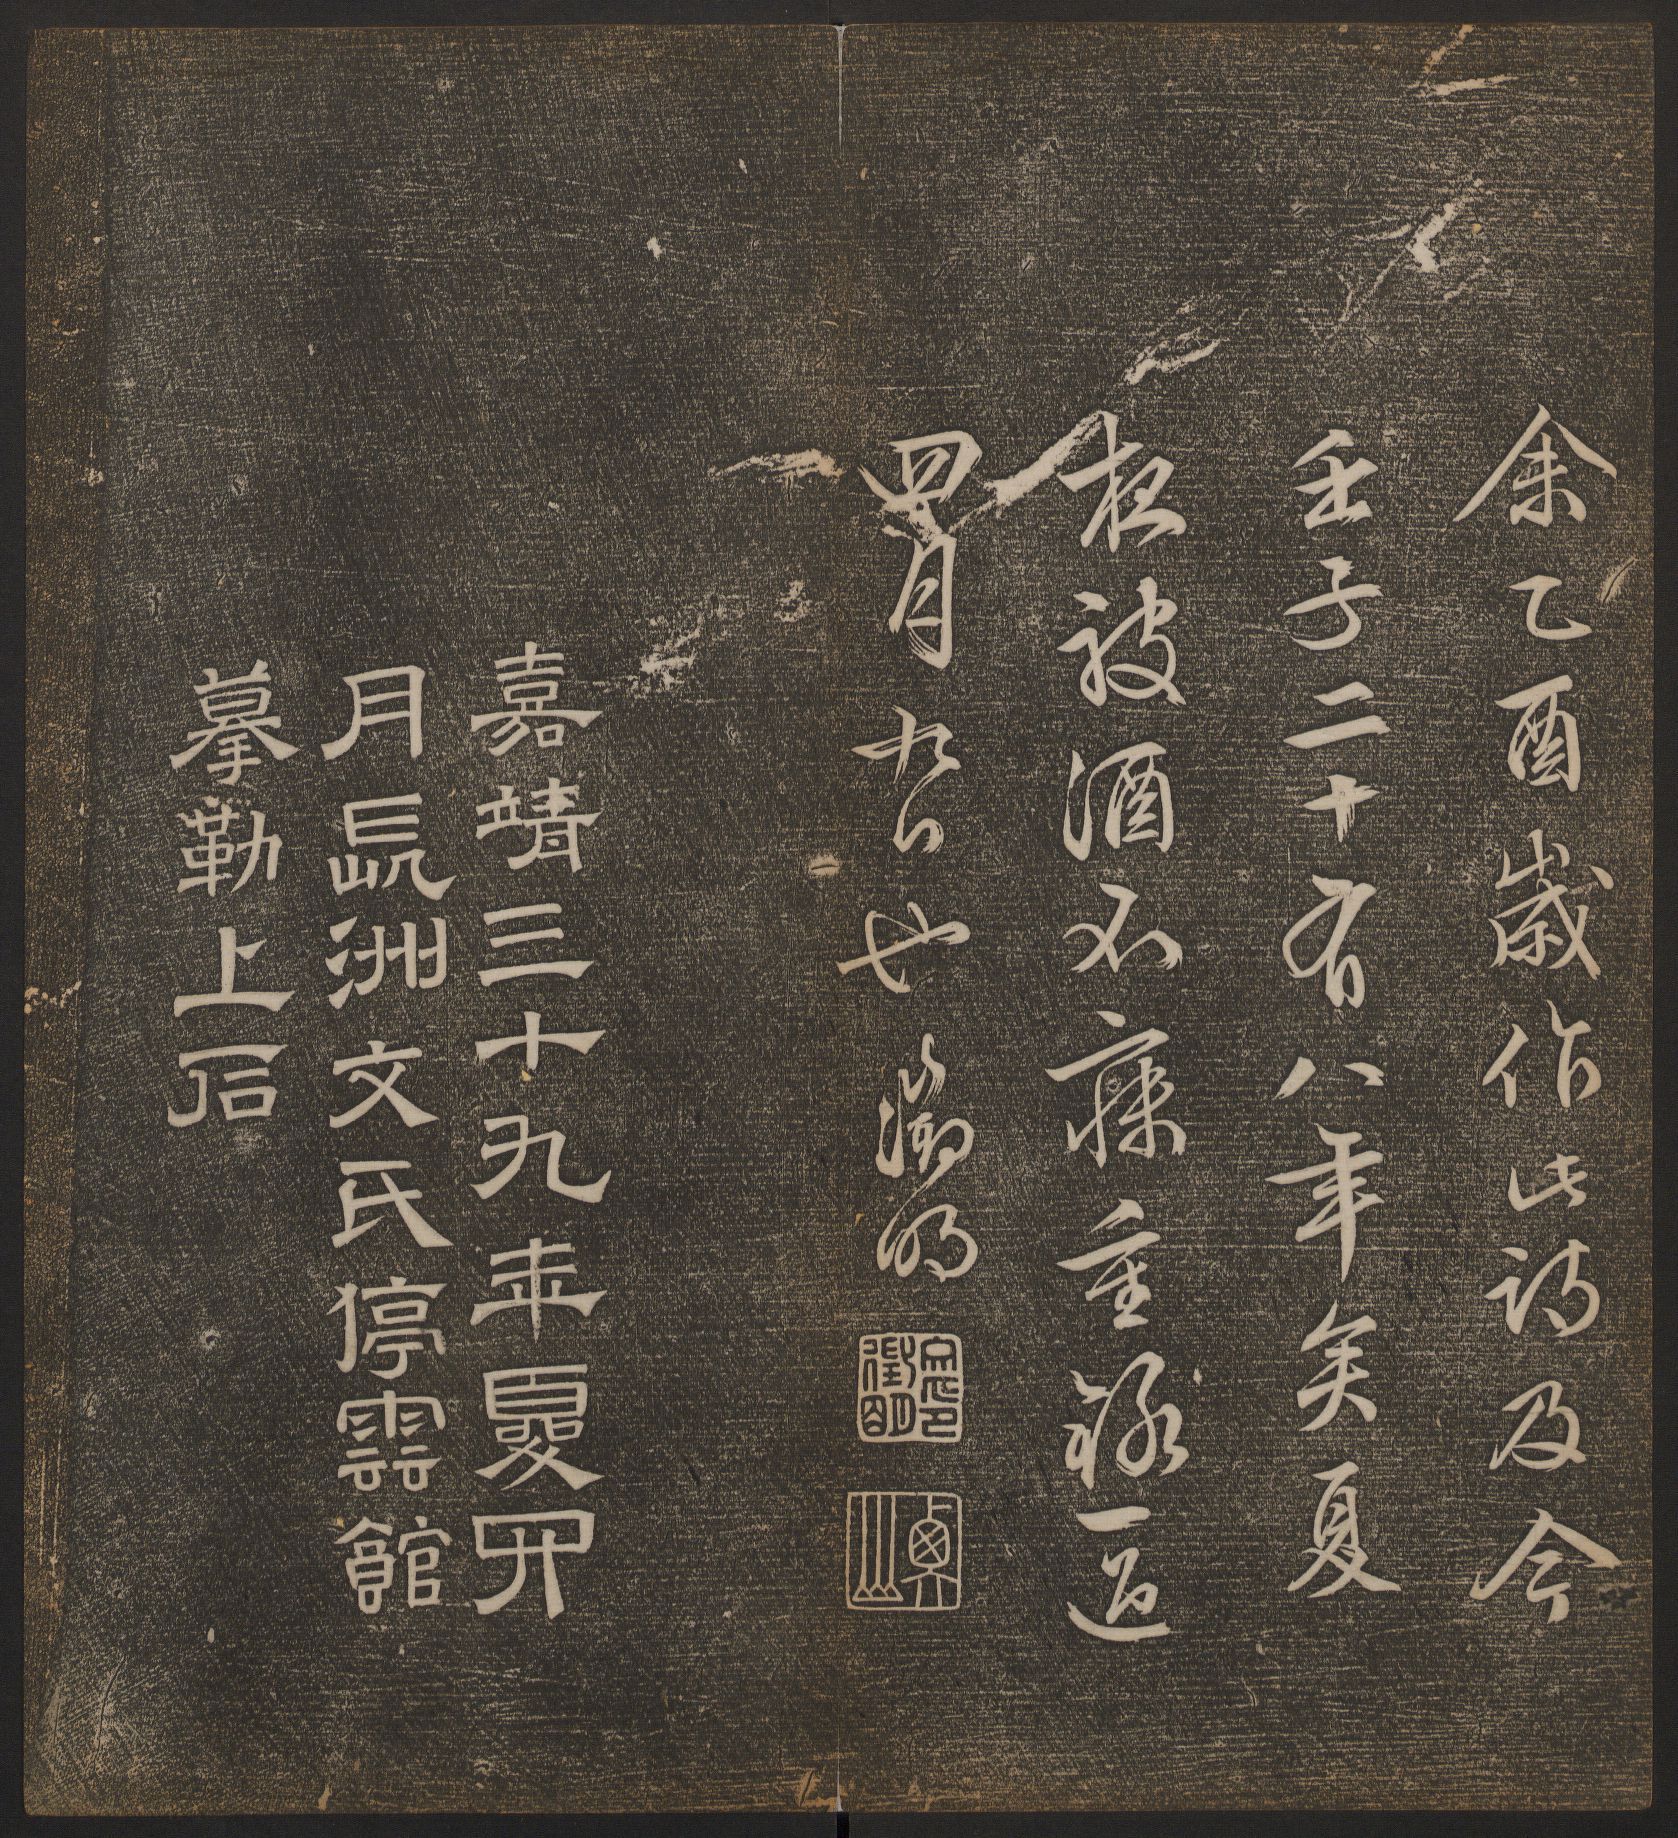 余乙酉歲作此詩及今
壬子二十有八年矣夏
夜被酒不寐重錄一過
四月九日也徵明
嘉靖三十九年夏四
月長洲文氏停雲館
摹勒上石